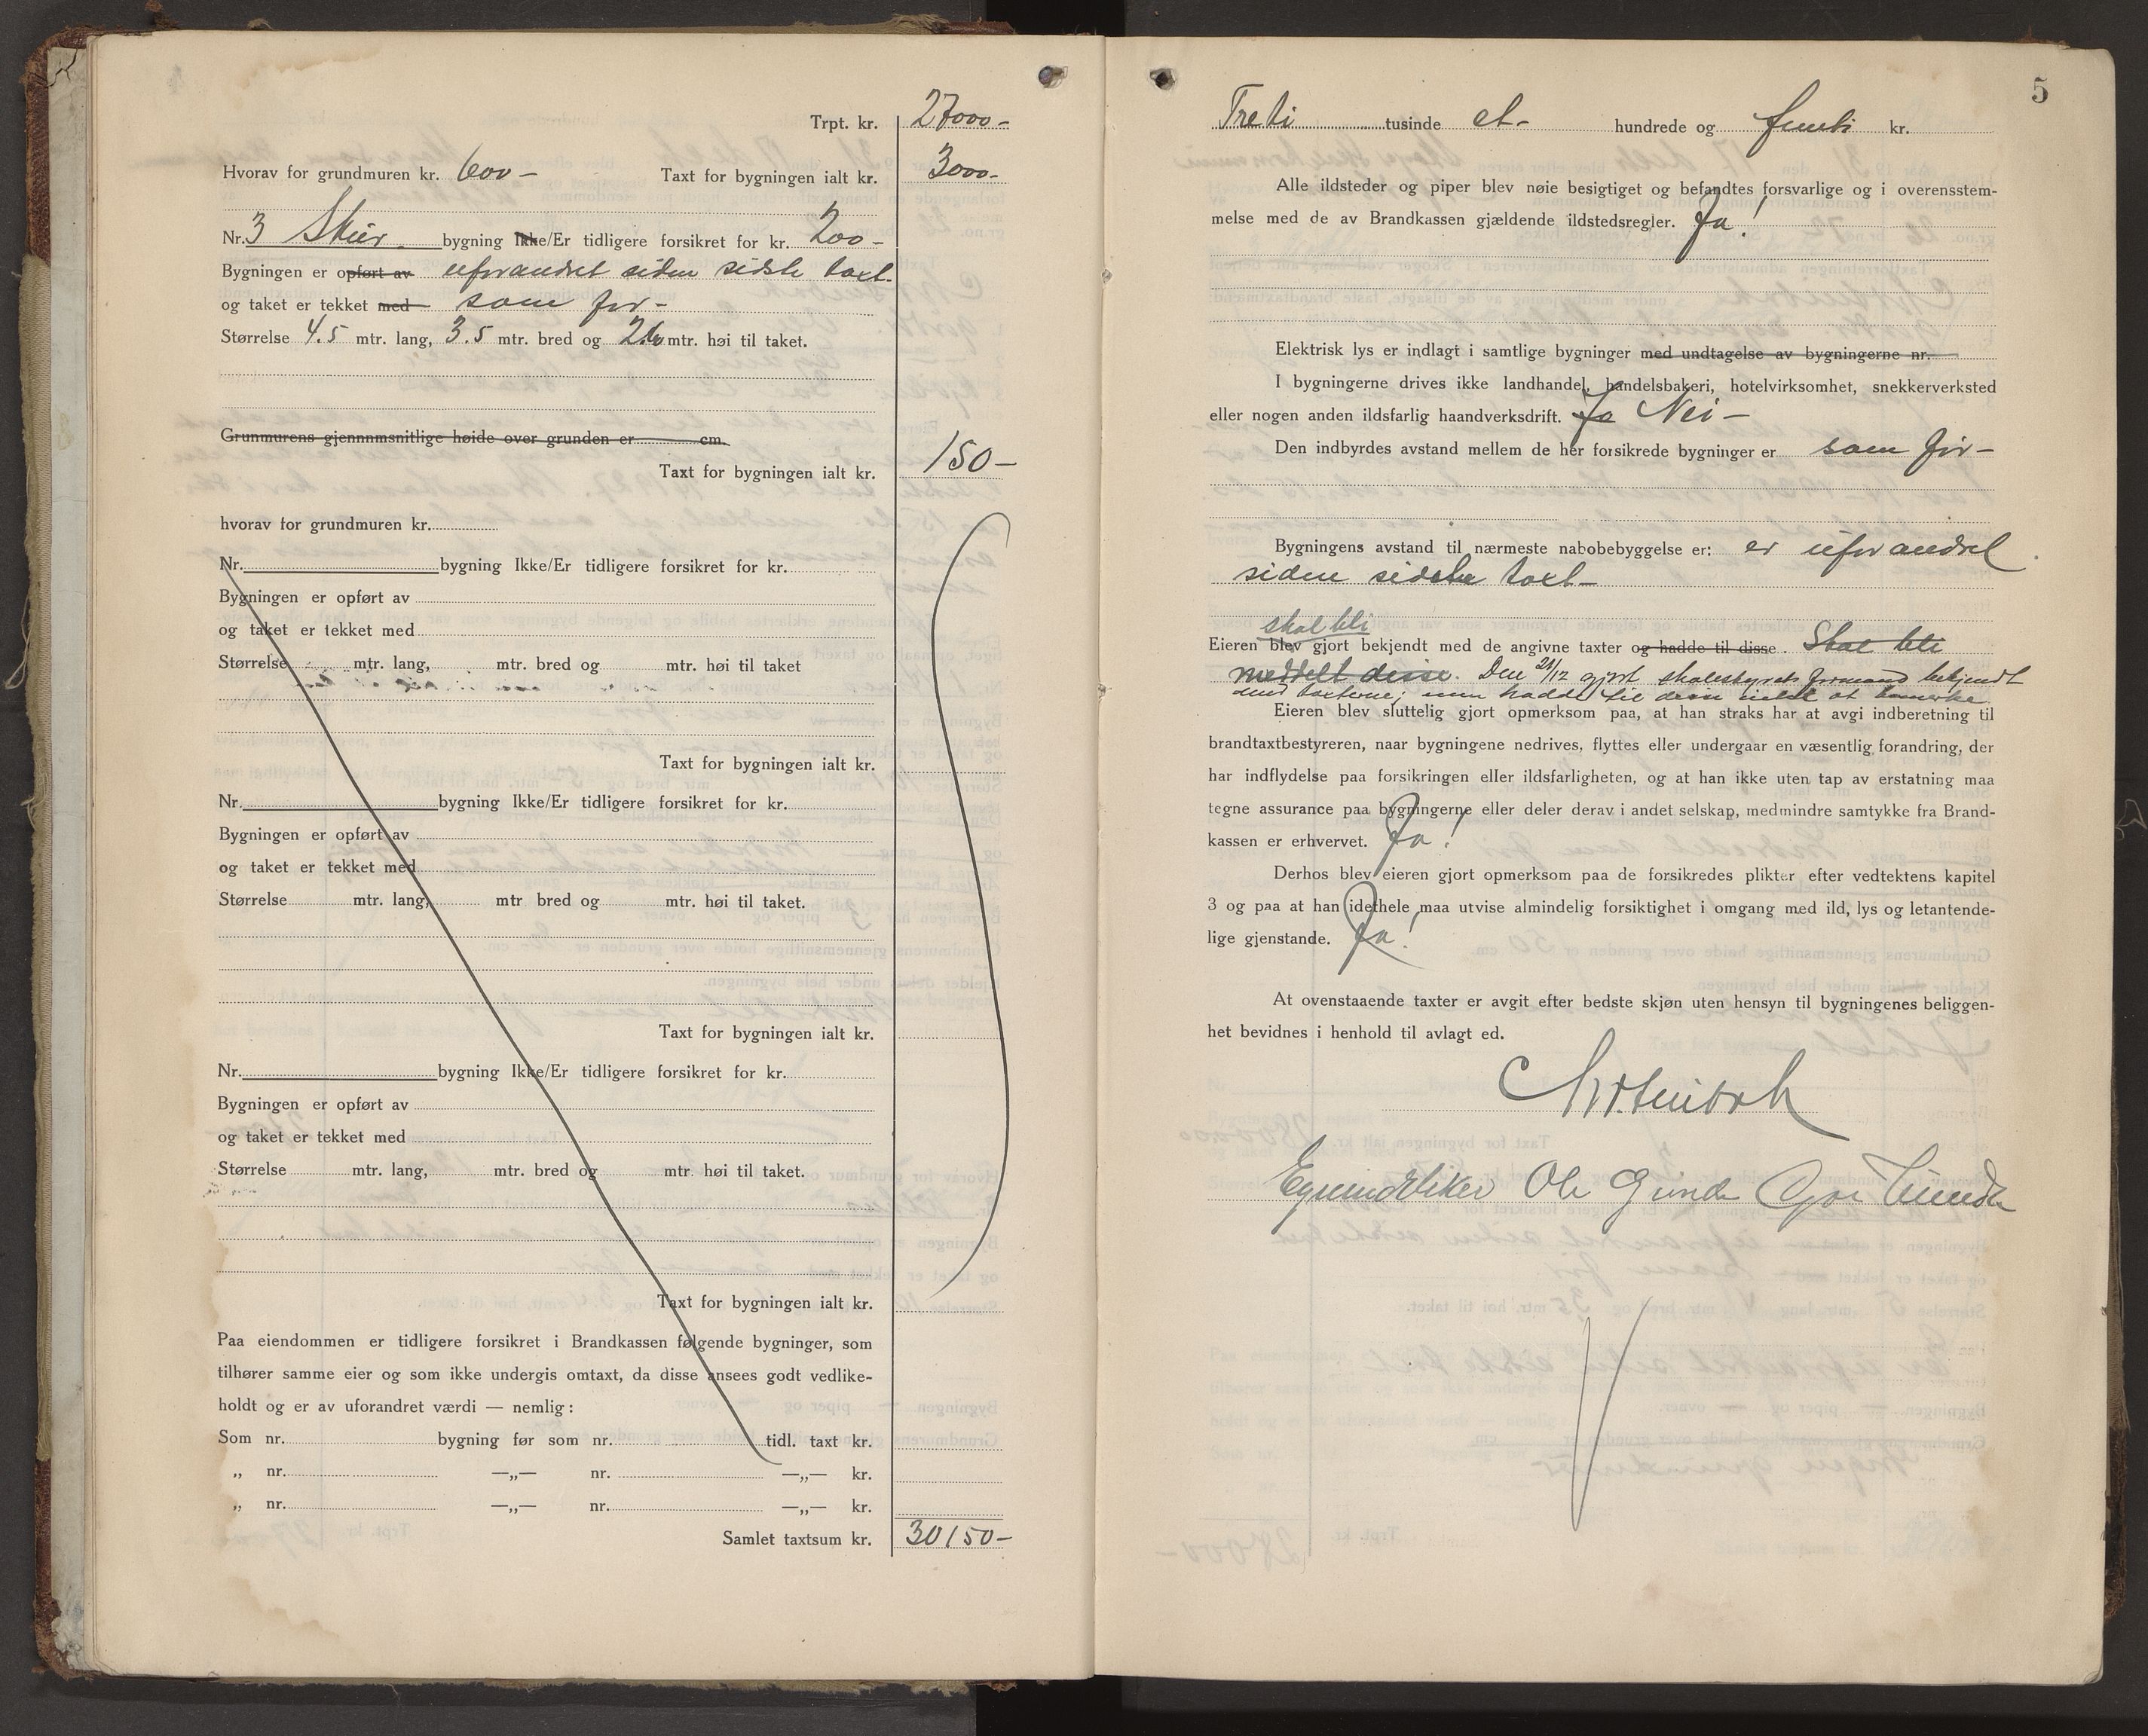 Trpt. kr. 27000-
Hvorav for grundmuren kr. 600- Taxt for bygningen ialt kr. 3000-
Nr. 3 Skur bygning Ikke/Er tidligere forsikret for kr. 200-
Bygningen er opført av uforandret siden sidste taxt-
og taket er tekket med som før-
Størrelse 4.5 mtr. lang, 3.5 mtr. bred og mtr. høi til taket.
Grunmurens gjennnmsnitlige høide over grunden er cm.
Taxt for bygningen ialt kr. 150-
hvorav for grundmuren kr.
Nr. bygning Ikke/Er tidligere forsikret for kr.
Bygningen er opført av
og taket er tekket med
Størrelse mtr. lang, mtr. bred og mtr. høi til taket
Taxt for bygningen ialt kr.
Nr. bygning Ikke/Er tidligere forsikret for kr.
Bygningen er opført av
og taket er tekket med
Størrelse mtr. lang, mtr bred og mtr. høi til taket.
Taxt for bygningen ialt kr.
Nr. bygning Ikke/Er tidligere forsikret for kr.
Bygningen er opført av
og taket er tekket med
Størrelse mtr. lang, mtr. bred og mtr. høi til taket.
Taxt for bygningen ialt kr.
Paa eiendommen er tidligere forsikret i Brandkassen følgende bygninger, som
tilhører samme eier og som ikke undergis omtaxt, da disse ansees godt vedlike-
holdt og er av uforandret værdi — nemlig:
Som nr. bygning før som nr. tidl. taxt kr.
„ nr. —„— nr. —„— kr.
„ nr. —„— nr. —„— kr.
Samlet taxtsum kr. 30150-
5
Treti tusinde et- hundrede og femti kr.
Alle ildsteder og piper blev nøie besigtiget og befandtes forsvarlige og i overensstem-
melse med de av Brandkassen gjældende ildstedsregler. Ja!
Elektrisk lys er indlagt i samtlige bygninger med undtagelse av bygningerne nr.
I bygningerne drives ikke landhandel, handelsbakeri, hotelvirksomhet, snekkerverksted
eller nogen anden ildsfarlig haandverksdrift. Ja Nei-
Den indbyrdes avstand mellem de her forsikrede bygninger er som før-
Bygningens avstand til nærmeste nabobebyggelse er: er uforandret
siden sidste taxt-
skal bli
Eieren blev gjort bekjendt med de angivne taxter og hadde til disse. Skal bli
meddelt disse. Den 21/12 gjort skolestyrets formand bekjendt
med taxterne; men hadde til dem intet at bemerke.
Eieren blev sluttelig gjort opmerksom paa, at han straks har at avgi indberetning til
brandtaxtbestyreren, naar bygningene nedrives, flyttes eller undergaar en væsentlig forandring, der
har indflydelse paa forsikringen eller ildsfarligheten, og at han ikke uten tap av erstatning maa
tegne assurance paa bygningerne eller deler derav i andet selskap, medmindre samtykke fra Brand-
kassen er erhvervet. Ja!
Derhos blev eieren gjort opmerksom paa de forsikredes plikter efter vedtektens kapitel
3 og paa at han idethele maa utvise almindelig forsiktighet i omgang med ild, lys og letantende-
lige gjenstande. Ja!
At ovenstaaende taxter er avgit efter bedste skjøn uten hensyn til bygningenes beliggen-
het bevidnes i henhold til avlagt ed.
Ole